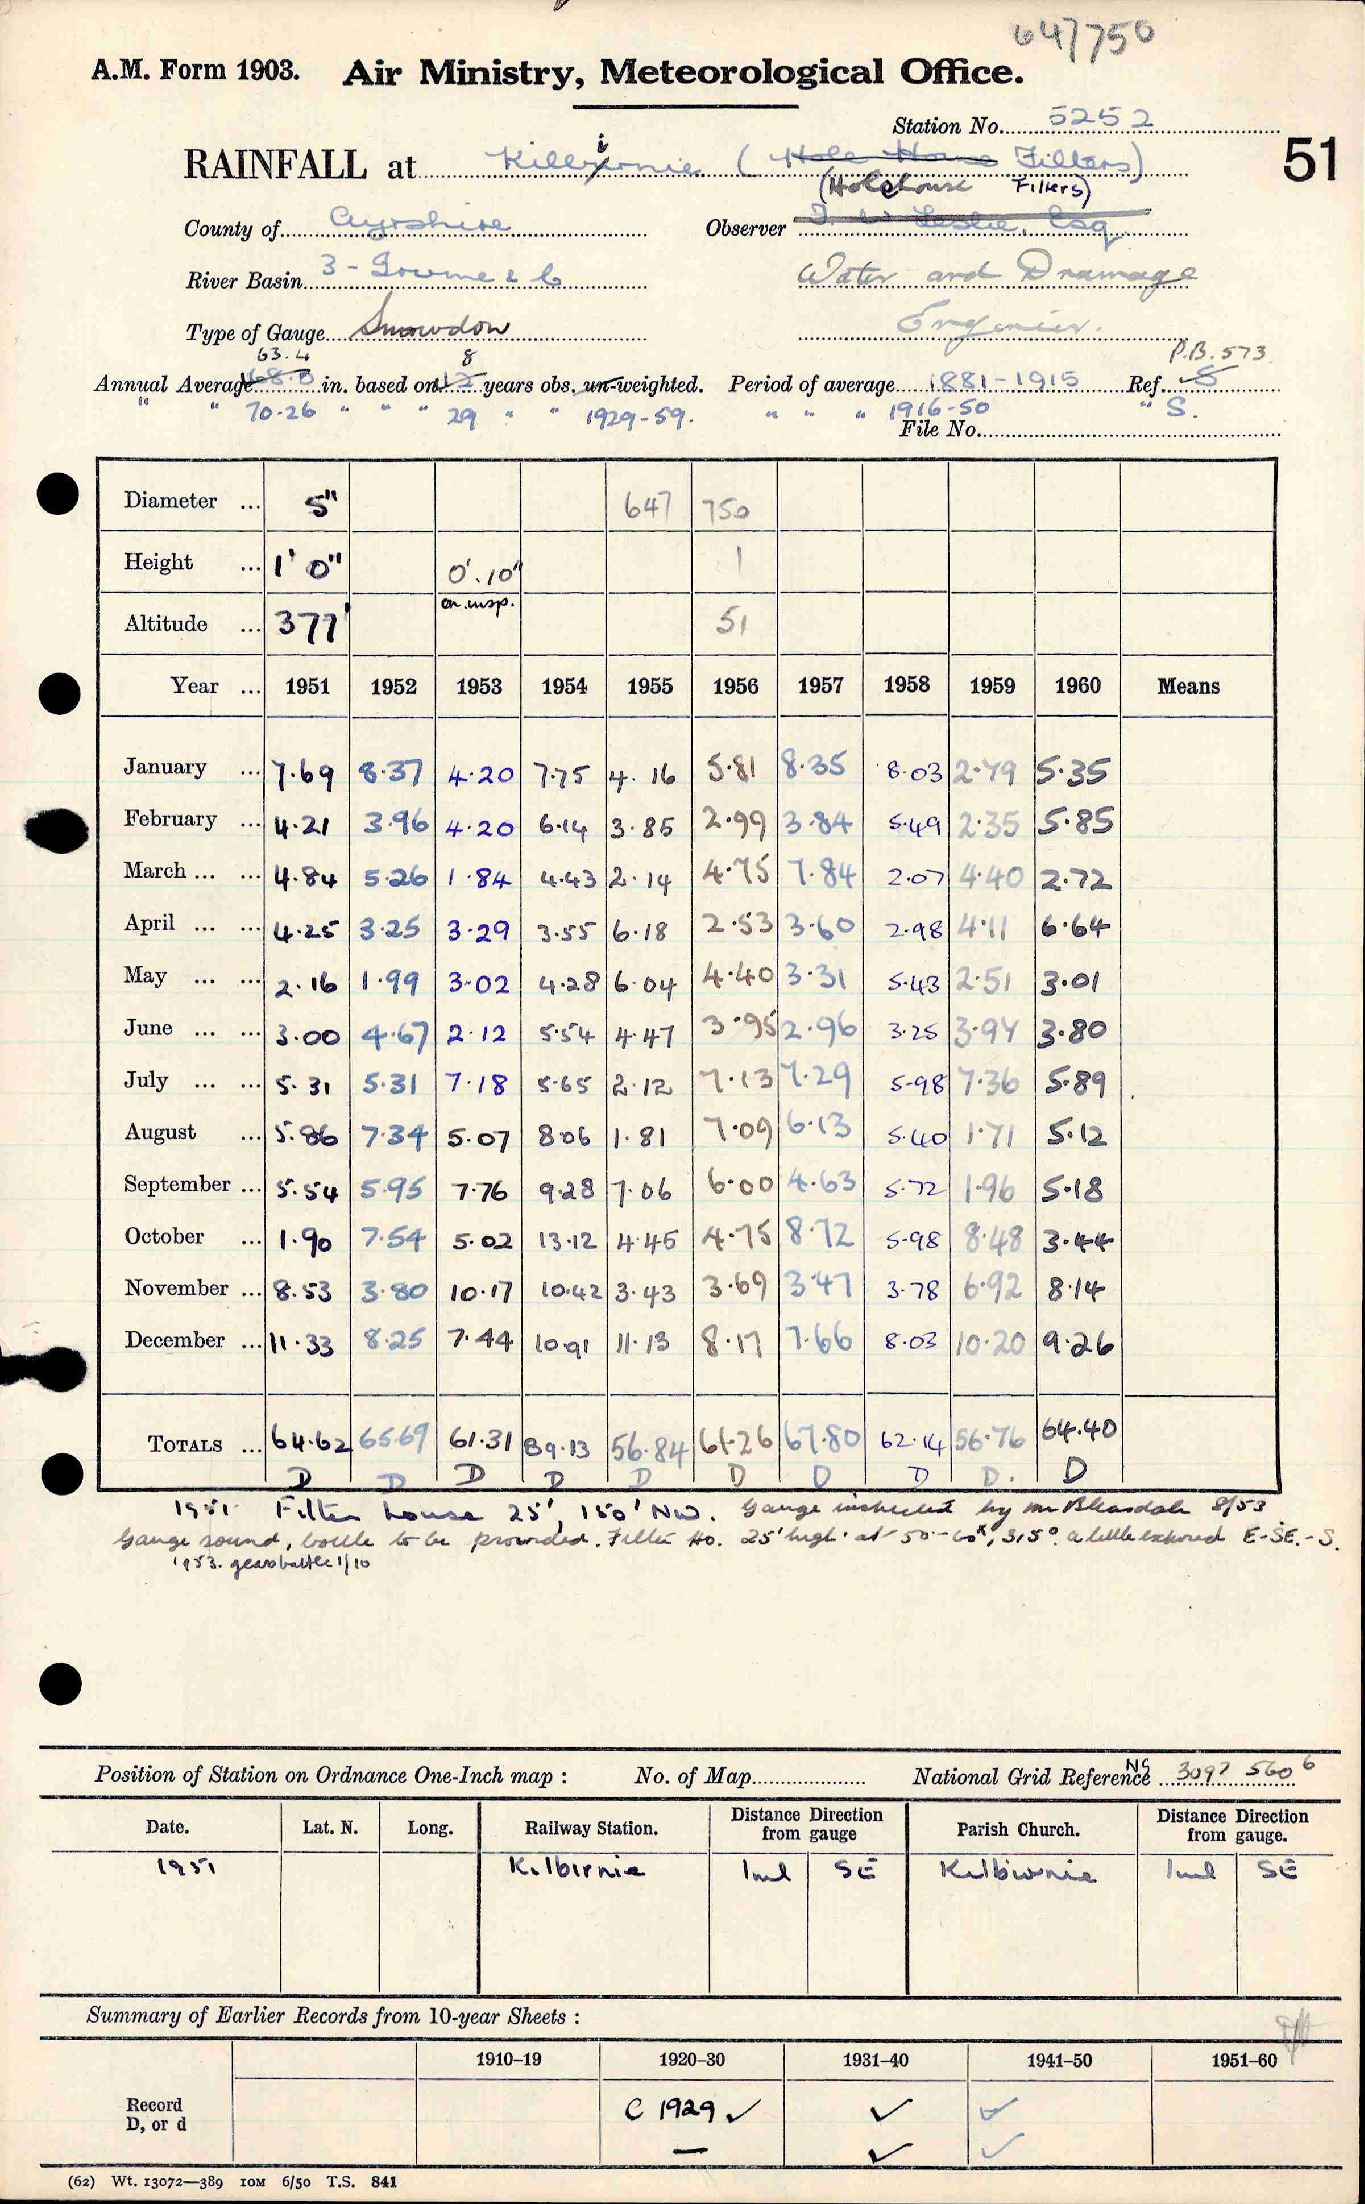 647750
A.M. Form 1903. Air Ministry, Meteorological Office.
Station No. 5252
51
RAINFALL at Kilbirnie (Hole House Filters)
(Holehouse Filters)
County of Ayrshire Observer Leslie, Esq
River Basin 3 - Irvine & C Water and Drainage
Type of Gauge Snowdon Engineer.
63.4 8 P.B. 573
Annual Average 68.0 in. based on 12 years obs. un-weighted. Period of average 1881-1915 Ref. S
" " 70.26 " " " 29 " " 1929-59. " " " 1916-50 " S.
File No.
Diameter ... 5" 647 750
Height ... 1' 0" 0'.10" 1
on insp.
Altitude ... 377' 51
Year ... 1951 1952 1953 1954 1955 1956 1957 1958 1959 1960 Means
January ... 7.69 8.37 4.20 7.75 4.16 5.81 8.35 8.03 2.79 5.35
February ... 4.21 3.96 4.20 6.14 3.85 2.99 3.84 5.49 2.35 5.85
March ... ... 4.84 5.26 1.84 4.43 2.14 4.75 7.84 2.07 4.40 2.72
April ... ... 4.25 3.25 3.29 3.55 6.18 2.53 3.60 2.98 4.11 6.64
May ... ... 2.16 1.99 3.02 4.28 6.04 4.40 3.31 5.43 2.51 3.01
June ... ... 3.00 4.67 2.12 5.54 4.47 3.95 2.96 3.25 3.97 3.80
July ... ... 5.31 5.31 7.18 5.65 2.12 7.13 7.29 5.98 7.36 5.89
August ... 5.86 7.34 5.07 8.06 1.81 7.09 6.13 5.40 1.71 5.12
September ... 5.54 5.95 7.76 9.28 7.06 6.00 4.63 5.72 1.96 5.18
October ... 1.90 7.54 5.02 13.12 4.45 4.75 8.72 5.98 8.48 3.44
November ... 8.53 3.80 10.17 10.42 3.43 3.69 3.47 3.78 6.92 8.14
December ... 11.33 8.25 7.44 10.91 11.13 8.17 7.66 8.03 10.20 9.26
TOTALS ... 64.62 65.69 61.31 89.13 56.84 61.26 67.80 62.14 56.76 64.40
D D D D D D D D D. D
1951 Filter house 25', 150' NW. Gauge inspected by Mr Bleasdale 8/53
Gauge sound, bottle to be provided. Filter Ho. 25' high at 50-60', 315° a little exposed E-SE.-S.
1953. glass bottle 1/10
Position of Station on Ordnance One-Inch map : No. of Map National Grid Reference NS 3097 5606
Date. Lat. N. Long. Railway Station. Distance Direction from gauge Parish Church. Distance Direction from gauge.
1951 Kilbirnie 1ml SE Kilbirnie 1ml SE
Summary of Earlier Records from 10-year Sheets :
1910-19 1920-30 1931-40 1941-50 1951-60
Record C 1929 ✓ ✓ ✓
D, or d — ✓ ✓
(62) Wt. 13072—389 10M 6/50 T.S. 841